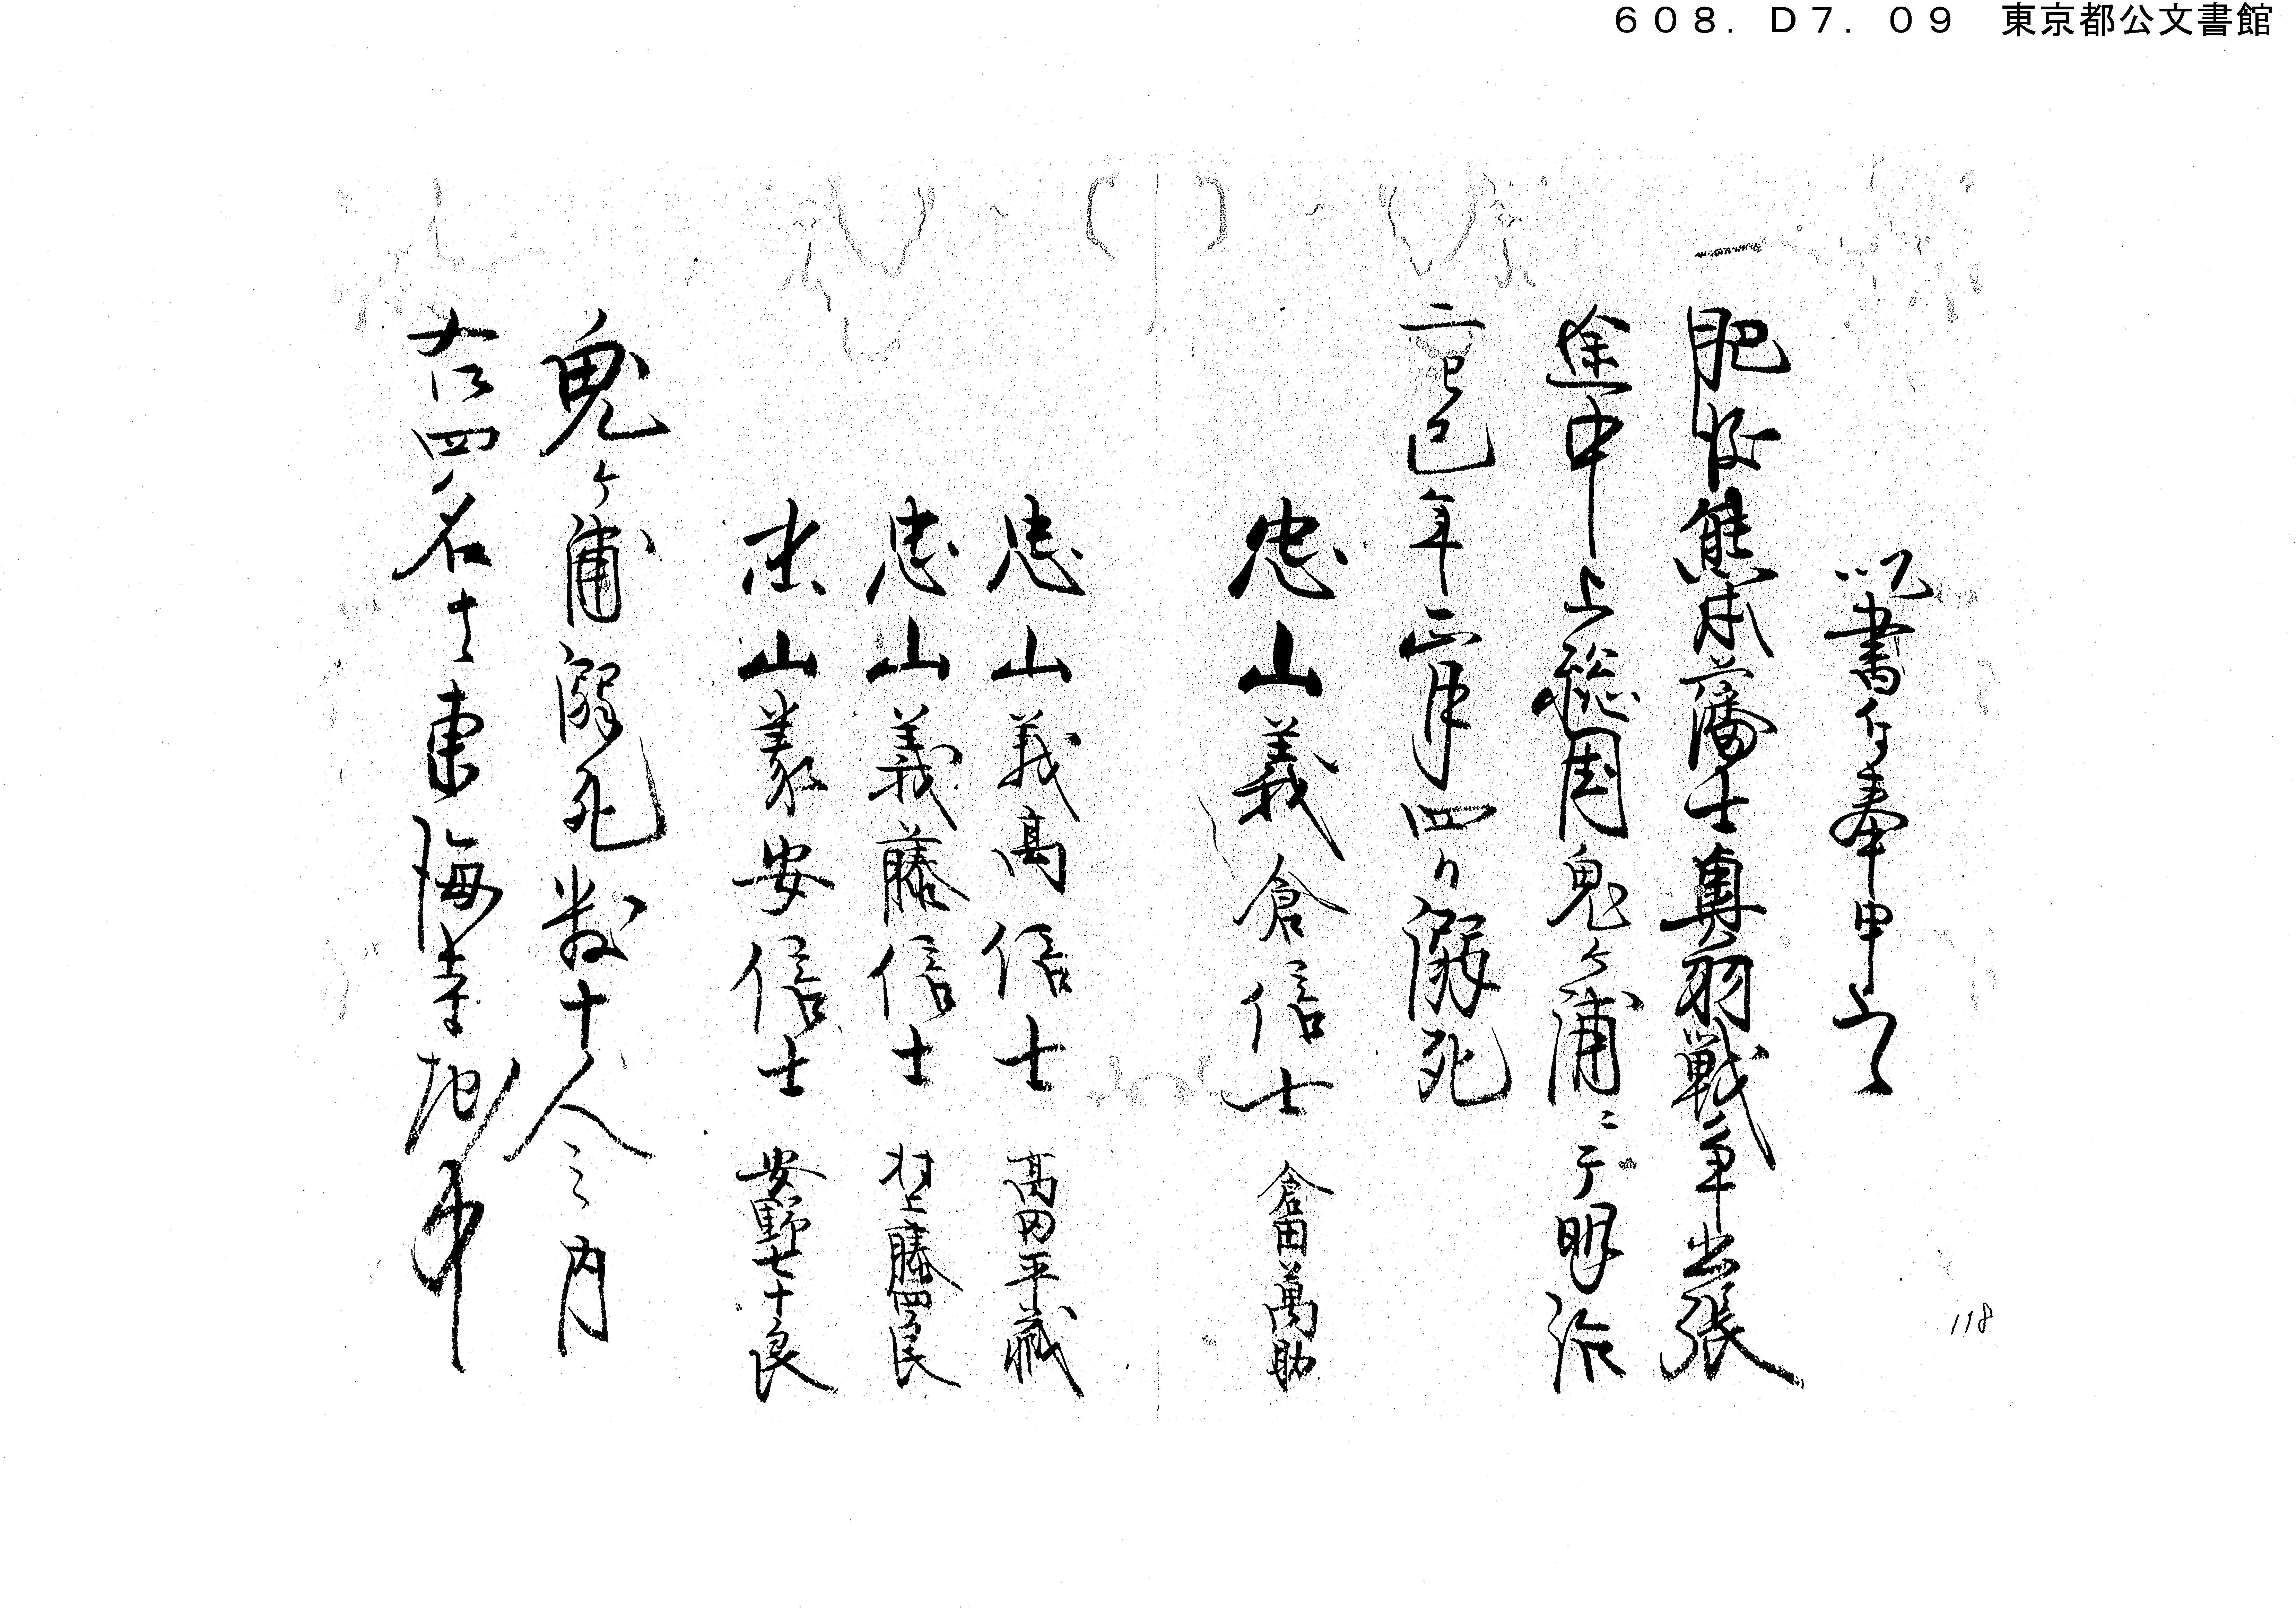 608. D7. 09 東京都公文書館
以書付奉申上候
一
肥後熊本藩士奥羽戦争出張
途中上総国鬼ヶ浦ニ于明治
二己巳年正月四日溺死
忠山義倉信士 倉田萬助
忠山義高信士 高田平蔵
忠山義藤信士 村上藤四良
忠山義安信士 安野七十良
鬼ヶ浦溺死数十人之内
右四名士東海寺地中
118